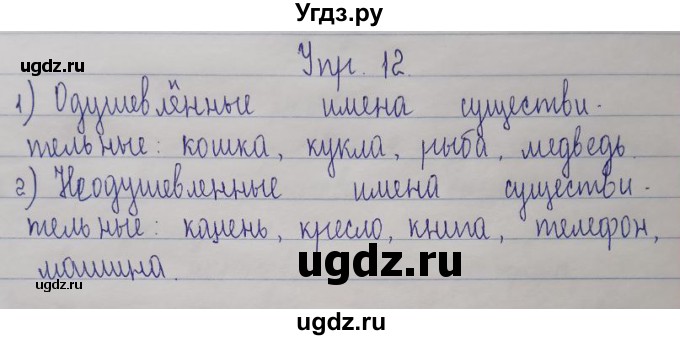 Угдз.ру
ugdz.ru ugdz.ru
Упр. 12.
1) Одушевлённые имена существи-
тельные: кошка, кукла, рыба, медведь.
ugdz.ru ugdz.ru
2) Неодушевленные имена существи-
тельные: камень, кресло, книга, телефон,
машина.
ugdz.ru ugdz.ru
ugdz.ru